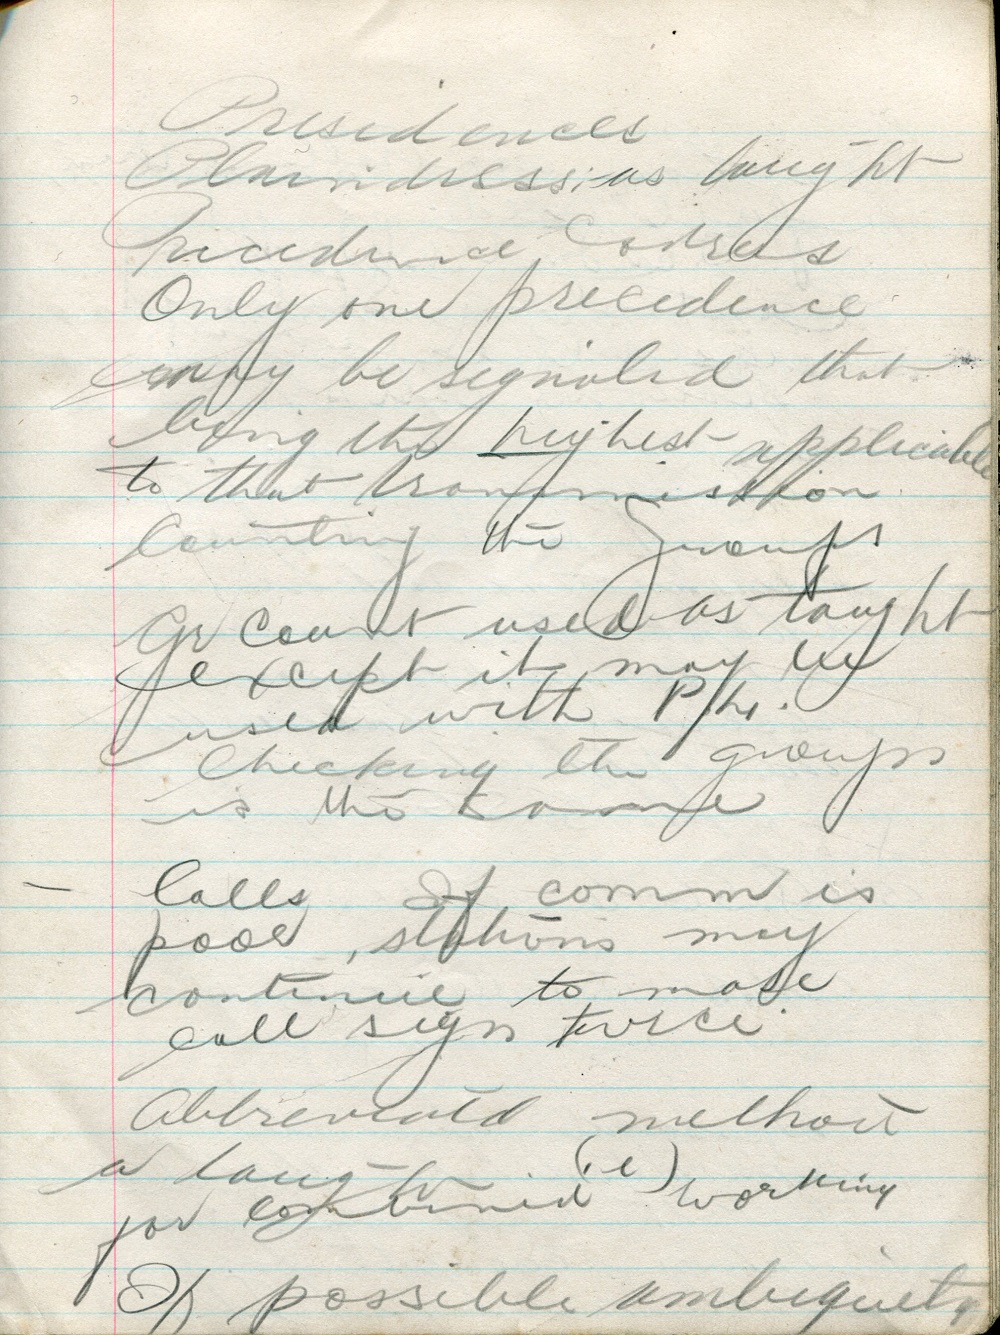 Presidences
Plaindress; as taught
Precedence Codress
Only one precedence
may be signaled that
being the highest applicable
to that transmission.
Counting the Groups
Gr Count used as taught
except it may be
used with P/L.
Checking the groups
is the same
Calls If comm is
poor, stations may
continue to make
call sign twice.
Abbreviated method
a taught (ie)
for combined working
If possible ambiguity